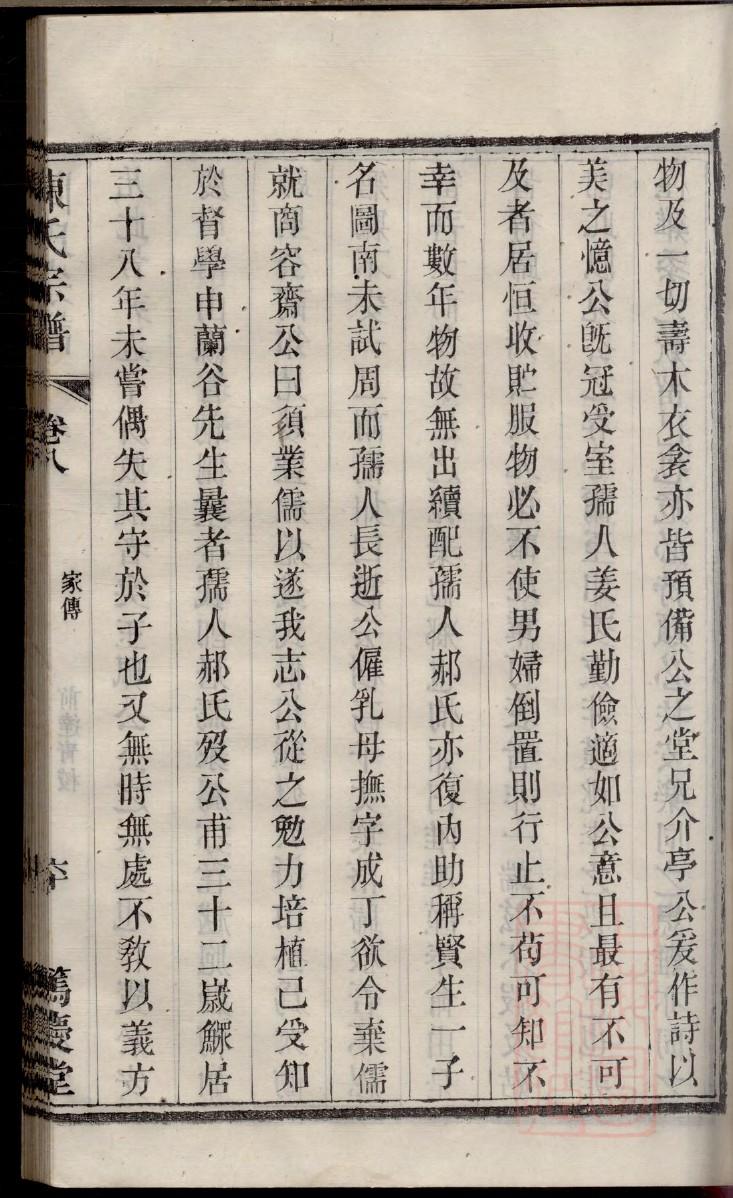 物及一切壽木衣衾亦皆預備公之堂兄介亭公爰作詩以
美之憶公旣冠受室孺人姜氏勤儉適如公意且最有不可
及者居恒收貯服物必不使男婦倒置則行止不苟可知不
幸而數年物故無出續配孺人郝氏亦復內助稱賢生一子
名圖南未試周而孺人長逝公僱乳母撫字成丁欲令棄儒
就商容齋公曰須業儒以遂我志公從之勉力培植已受知
於督學申蘭谷先生曩者孺人郝氏歿公甫三十二歲鰥居
三十八年未嘗偶失其守於子也又無時無處不敎以義方
陳氏宗譜
卷八
家傳
六
篤慶堂